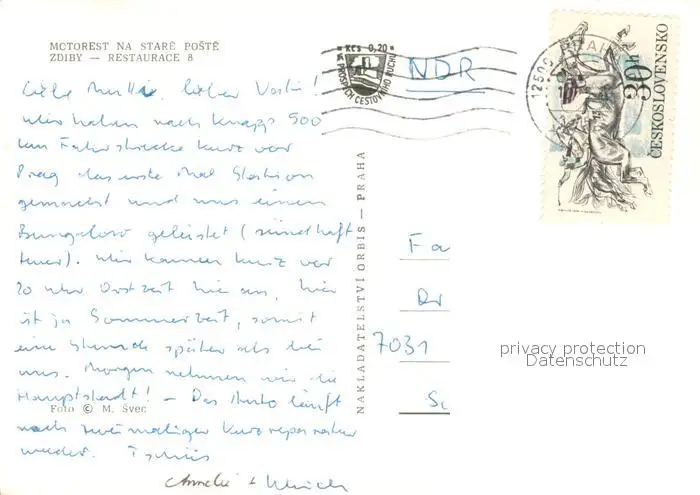 MOTOREST NA STARÉ POŠTĚ
ZDIBY — RESTAURACE 8
Liebe Mutti, lieber Vati!
Wir haben nach knapp 500
km Fahrstrecke kurz vor
Prag das erste Mal Station
gemacht und uns einen
Bungalow geleistet (sündhaft
teuer). Wir kamen kurz vor
20 Uhr Ortszeit hier an, hier
ist ja Sommerzeit, somit
eine Stunde später als bei
uns. Morgen nehmen wir die
Hauptstadt! - Das Auto läuft
nach zweimaliger Kurzreparatur
wieder. Tschüs
Annelie + Ulrich
Foto © M. Švec
NAKLADATELSTVÍ ORBIS — PRAHA
Kčs 0,20
PROSPĚCH CESTOVNÍHO RUCHU
12500 PRAHA
30h
ČESKOSLOVENSKO
NDR
Fa
Dr
7031
privacy protection
Datenschutz